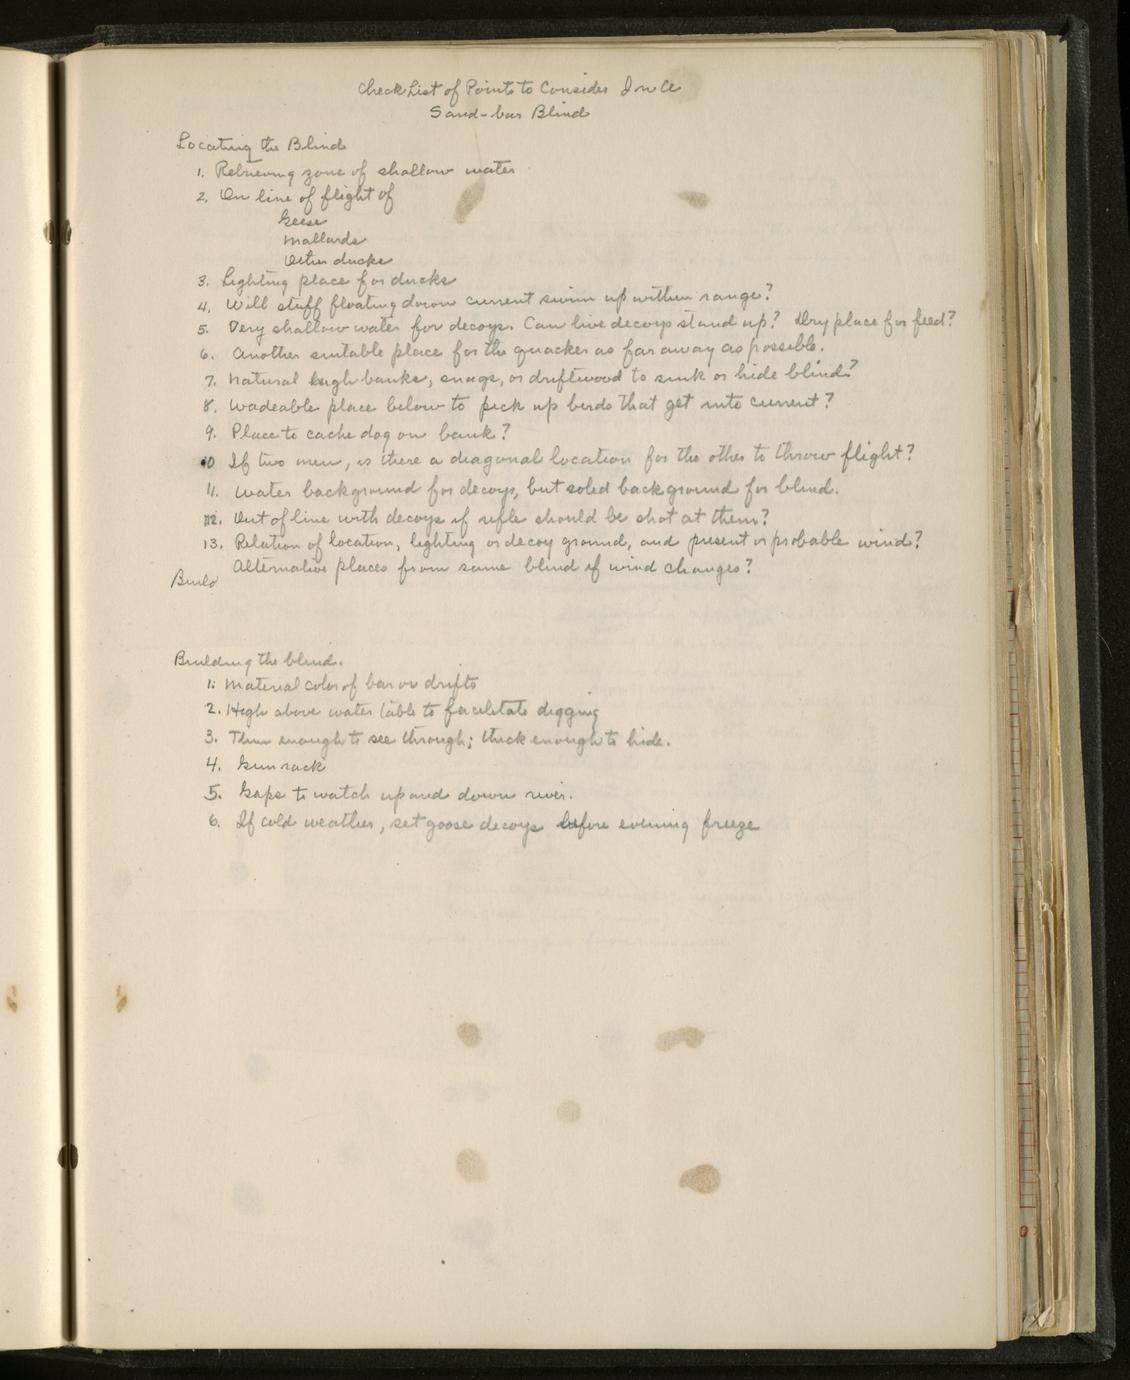 Check List of Points to Consider In A
Sand-bar Blind
Locating the Blind
1. Retrieving zone of shallow water
2. On line of flight of
Geese
Mallards
Other ducks
3. Lighting place for ducks
4. Will stuff floating down current swim up within range?
5. Very shallow water for decoys. Can live decoys stand up? Dry place for feed?
6. Another suitable place for the quacker as far away as possible.
7. Natural high banks, snags, or driftwood to sink or hide blind?
8. Wadeable place below to pick up birds that get into current?
9. Place to cache dog on bank?
10 If two men, is there a diagonal location for the other to throw flight?
11. Water background for decoys, but solid background for blind.
12. Out of line with decoys if rifle should be shot at them?
13. Relation of location, lighting or decoy ground, and present or probable wind?
Alternative places from same blind if wind changes?
Build
Building the blind.
1. Material color of bar or drifts
2. High above water table to facilitate digging
3. Thin enough to see through; thick enough to hide.
4. Gun rack
5. Gaps to watch up and down river.
6. If cold weather, set goose decoys before evening freeze
0